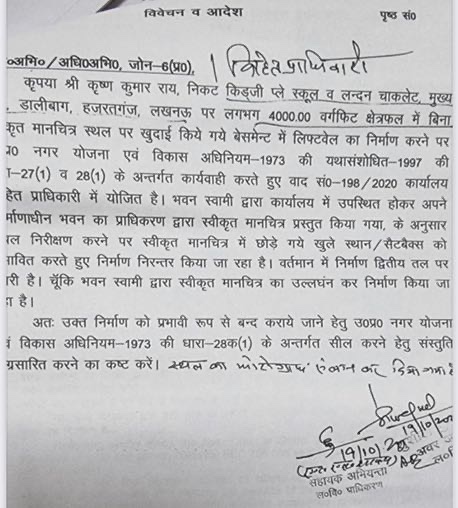 विवेचन व आदेश
पृष्ठ सं0
०अभि० / अधि०अभि०, जोन–6(प्र०),
विहित प्राधिकारी
कृपया श्री कृष्ण कुमार राय, निकट किड्जी प्ले स्कूल व लन्दन चाकलेट, मुख्य
डालीबाग, हजरतगंज, लखनऊ पर लगभग 4000.00 वर्गफिट क्षेत्रफल में बिना
कृत मानचित्र स्थल पर खुदाई किये गये बेसमेन्ट में लिफ्टवेल का निर्माण करने पर
प्र० नगर योजना एवं विकास अधिनियम–1973 की यथासंशोधित–1997 की
–27(1) व 28(1) के अन्तर्गत कार्यवाही करते हुए वाद सं०–198 / 2020 कार्यालय
हित प्राधिकारी में योजित है। भवन स्वामी द्वारा कार्यालय में उपस्थित होकर अपने
र्माणाधीन भवन का प्राधिकरण द्वारा स्वीकृत मानचित्र प्रस्तुत किया गया, के अनुसार
ल निरीक्षण करने पर स्वीकृत मानचित्र में छोड़े गये खुले स्थान / सैटबैक्स को
ावित करते हुए निर्माण निरन्तर किया जा रहा है। वर्तमान में निर्माण द्वितीय तल पर
री है। चूँकि भवन स्वामी द्वारा स्वीकृत मानचित्र का उल्लघंन कर निर्माण किया जा
ा है।
अतः उक्त निर्माण को प्रभावी रूप से बन्द कराये जाने हेतु उ०प्र० नगर योजना
वं विकास अधिनियम–1973 की धारा–28क(1) के अन्तर्गत सील करने हेतु संस्तुति
ग्रसारित करने का कष्ट करें। स्थल का फोटोग्राफ संलग्न कर दिया गया है
19/10/20
19/10/20
सहायक अभियन्ता
अवर
ल०वि० प्राधिकरण
ल०वि